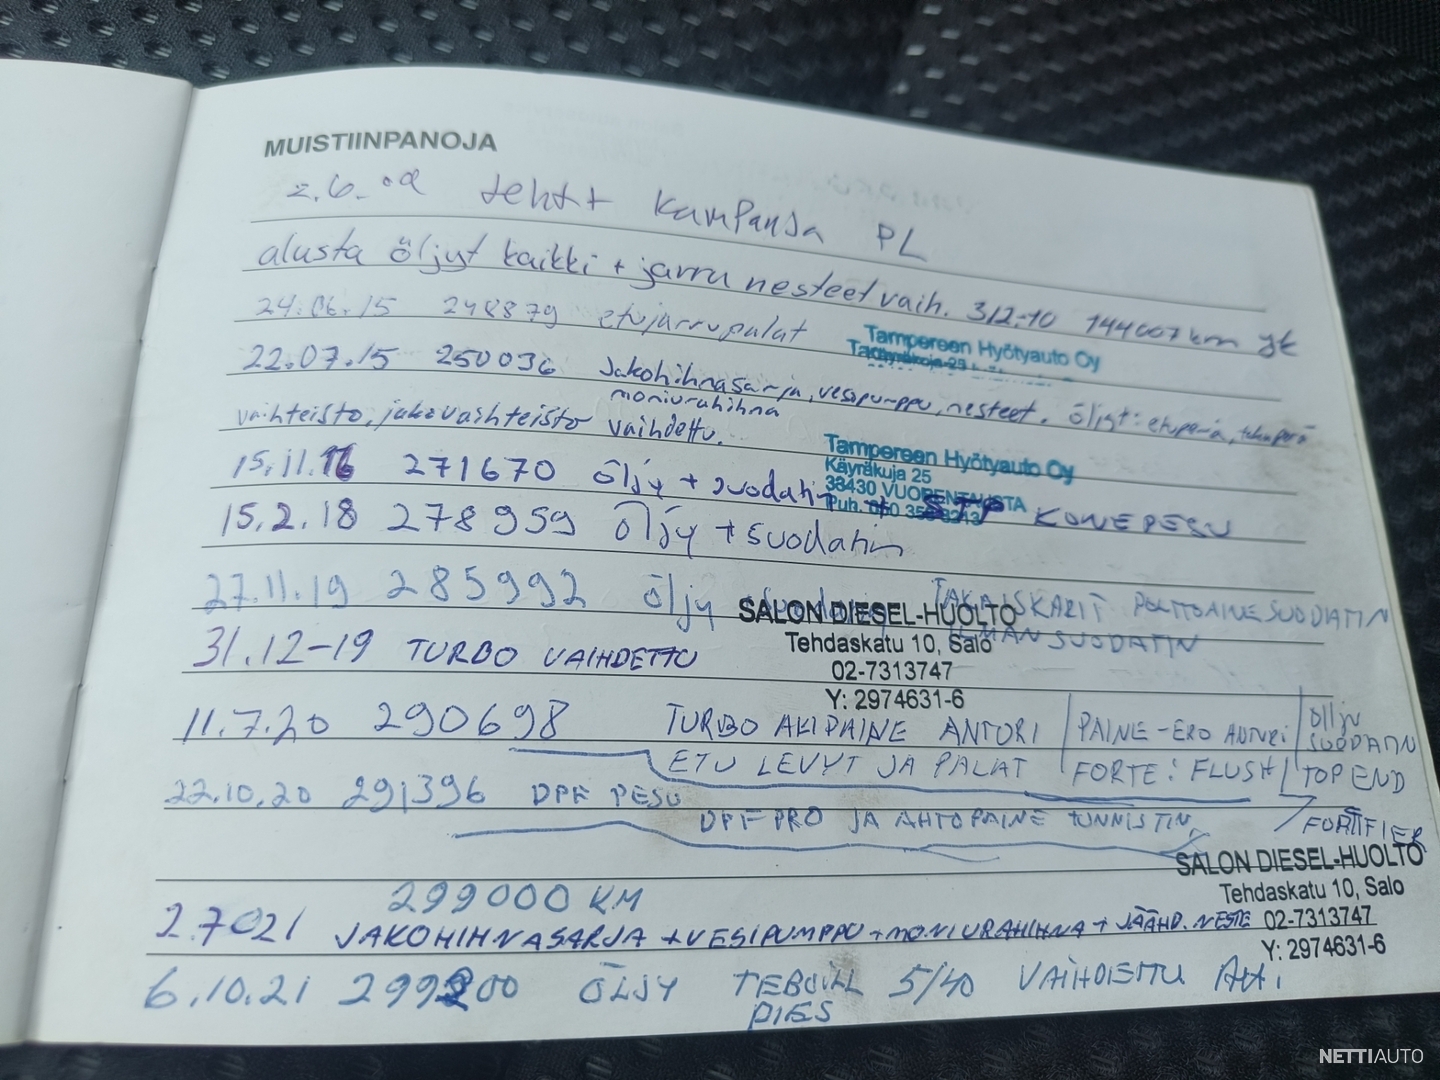 MUISTIINPANOJA
2.6.09 tehty kampanja PL
alusta öljyt kaikki + jarru nesteet vaih. 3/2-10 144007 km
24.06.15 248879 etujarrupalat
Tampereen Hyötyauto Oy
22.07.15 250036 Jakohihnasarja, vesipumppu, nesteet. Öljyt: etuperä, takaperä
moniurahihna
vaihteisto, jakovaihteisto vaihdettu.
Tampereen Hyötyauto Oy
Käyräkuja 25
15.11.16 271670 öljy + suodatin + STP KONEPESU
15.2.18 278959 öljy + suodatin
27.11.19 285992 öljy TAKAISKARIT POLTTOAINESUODATIN
ILMANSUODATIN
SALON DIESEL-HUOLTO
Tehdaskatu 10, Salo
02-7313747
Y: 2974631-6
31.12-19 TURBO VAIHDETTU
11.7.20 290698 TURBO ALIPAINE ANTURI PAINE-ERO ANTURI öljy SUODATIN
ETU LEVYT JA PALAT FORTE: FLUSH TOP END
22.10.20 291396 DPF PESU
DPF PRO JA AHTOPAINE TUNNISTIN
SALON DIESEL-HUOLTO
Tehdaskatu 10, Salo
02-7313747
Y: 2974631-6
299000 KM
2.7021 JAKOHIHNASARJA + VESIPUMPPU + MONIURAHIHNA + JÄÄHD. NESTE
6.10.21 299200 ÖLJY TEBOIL 5/40 VAIHDETTU
NETTIAUTO